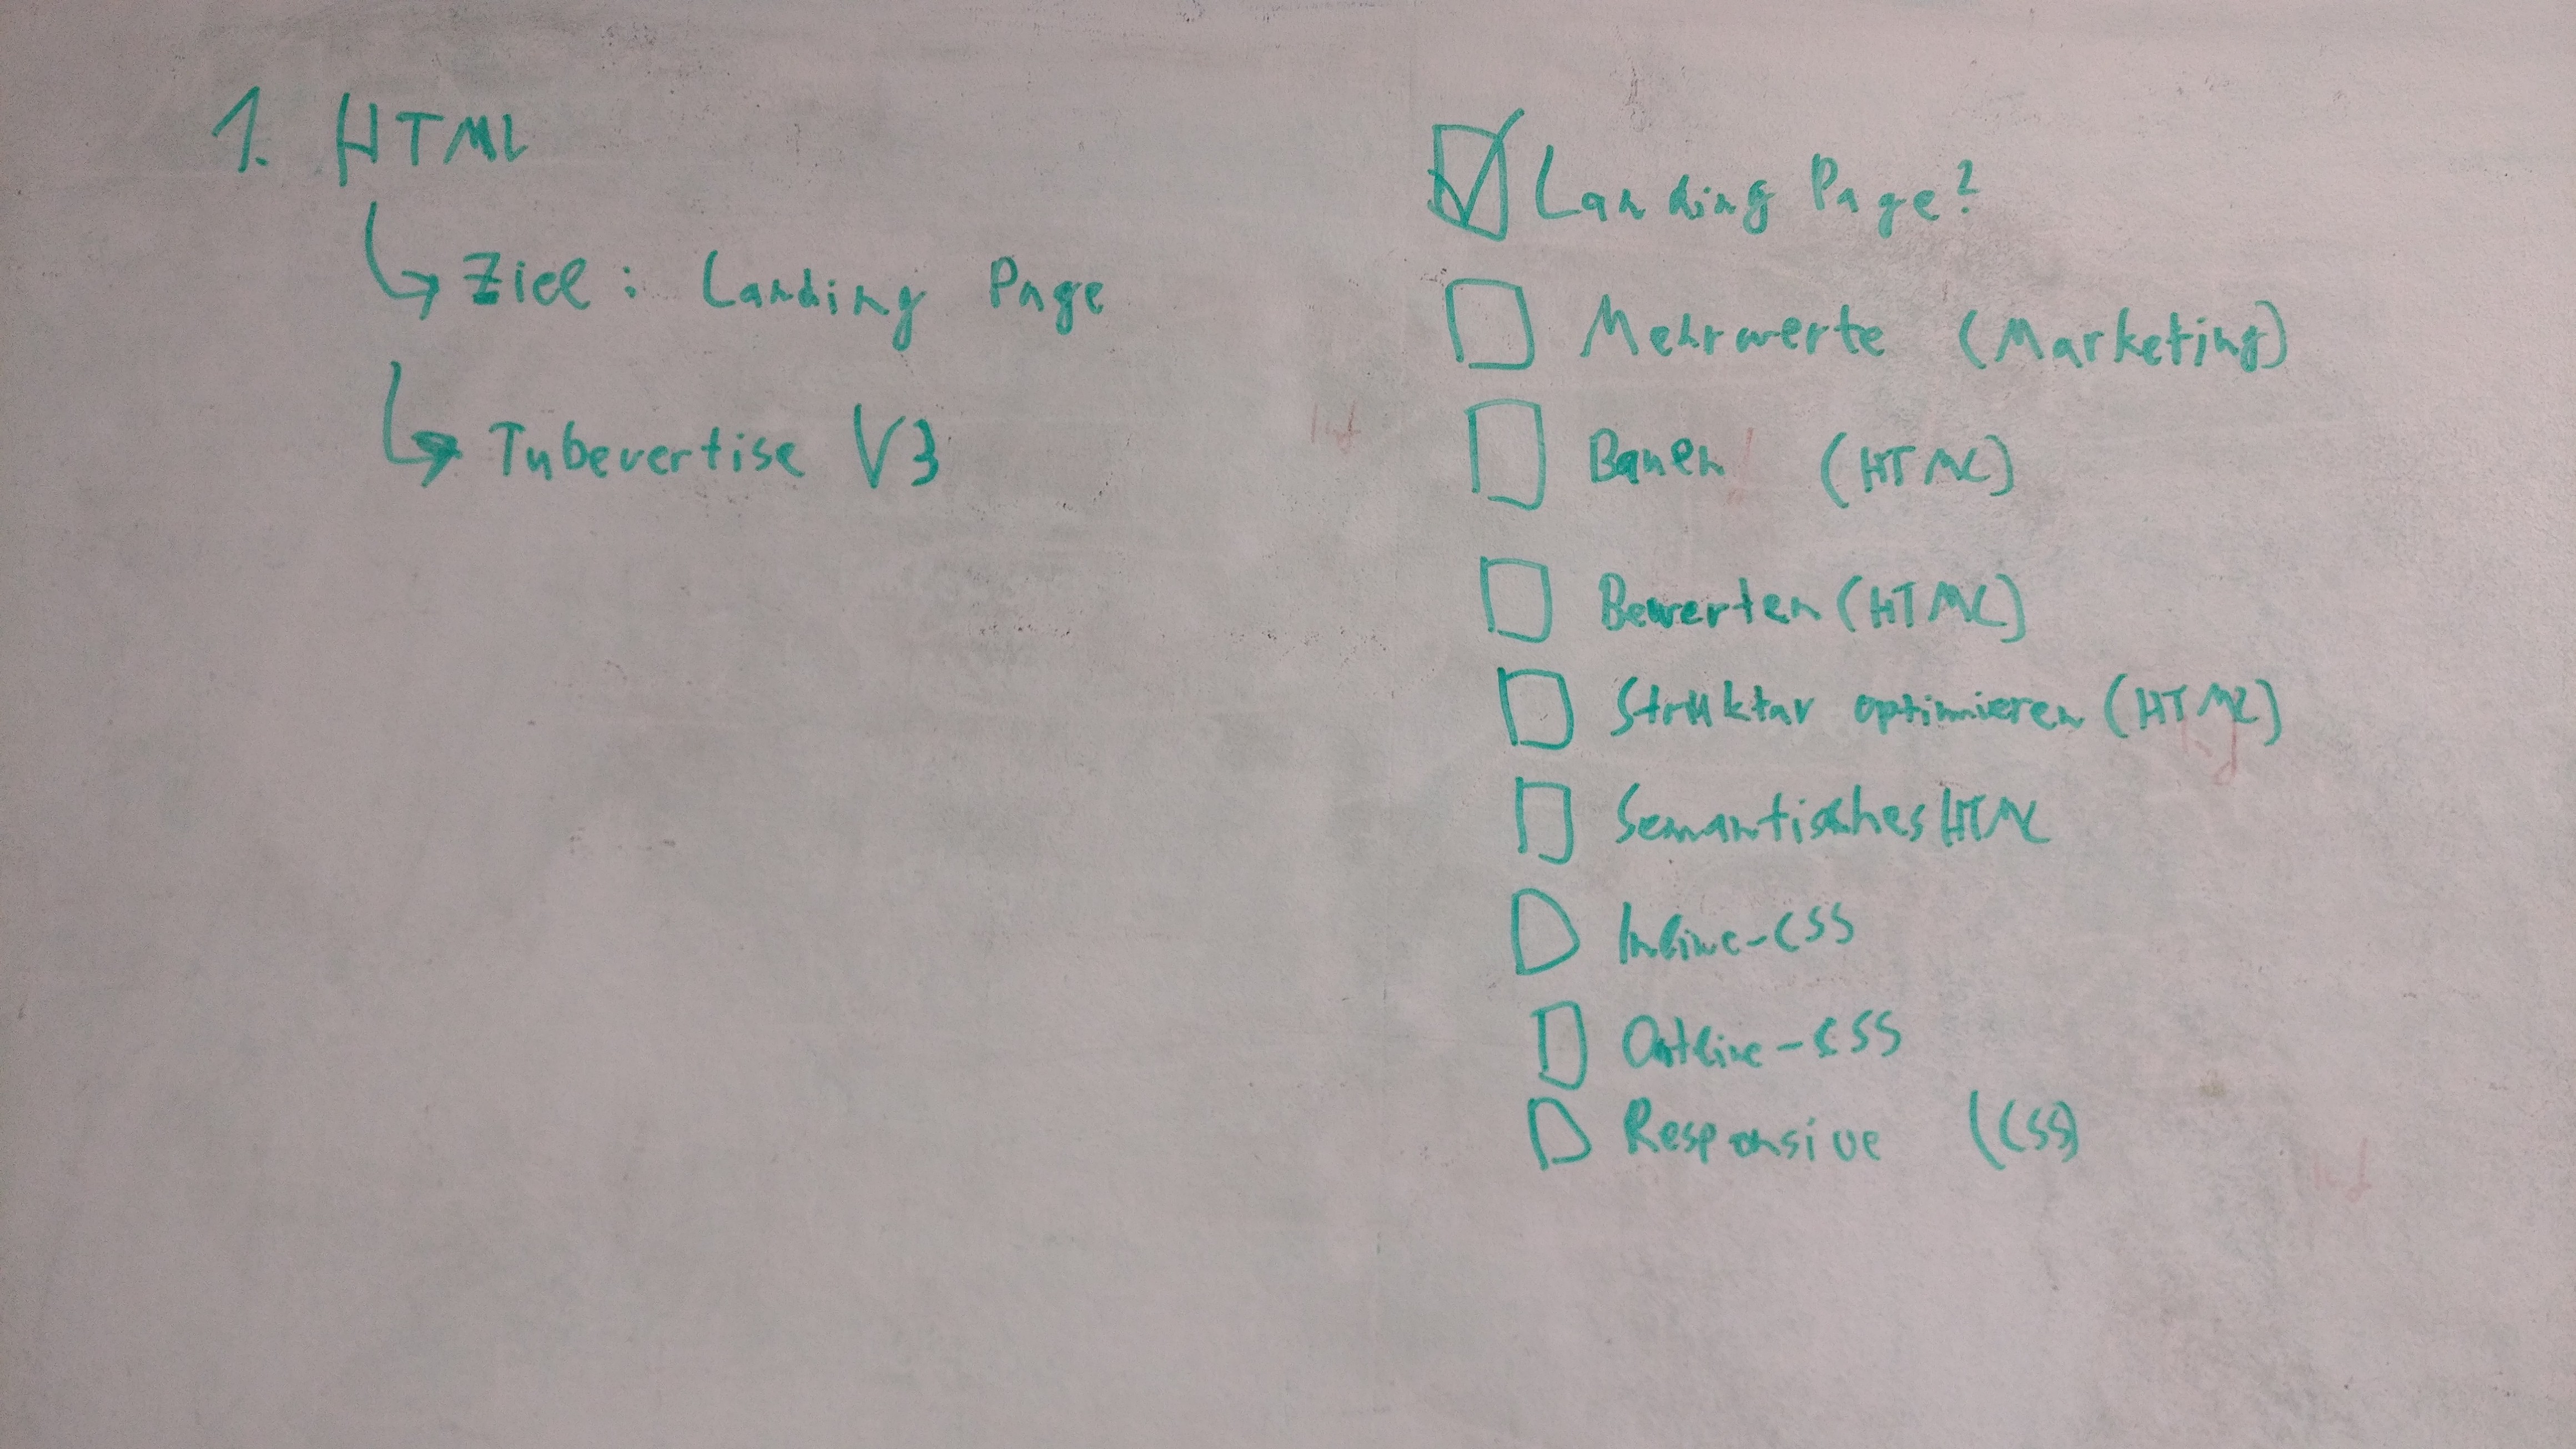 1. HTML
↳ Ziel: Landing Page
↳ Tubevertise V3
☑ Landing Page?
☐ Mehrwerte (Marketing)
☐ Bauen (HTML)
☐ Bewerten (HTML)
☐ Struktur optimieren (HTML)
☐ Semantisches HTML
☐ Inline-CSS
☐ Outline-CSS
☐ Responsive (CSS)